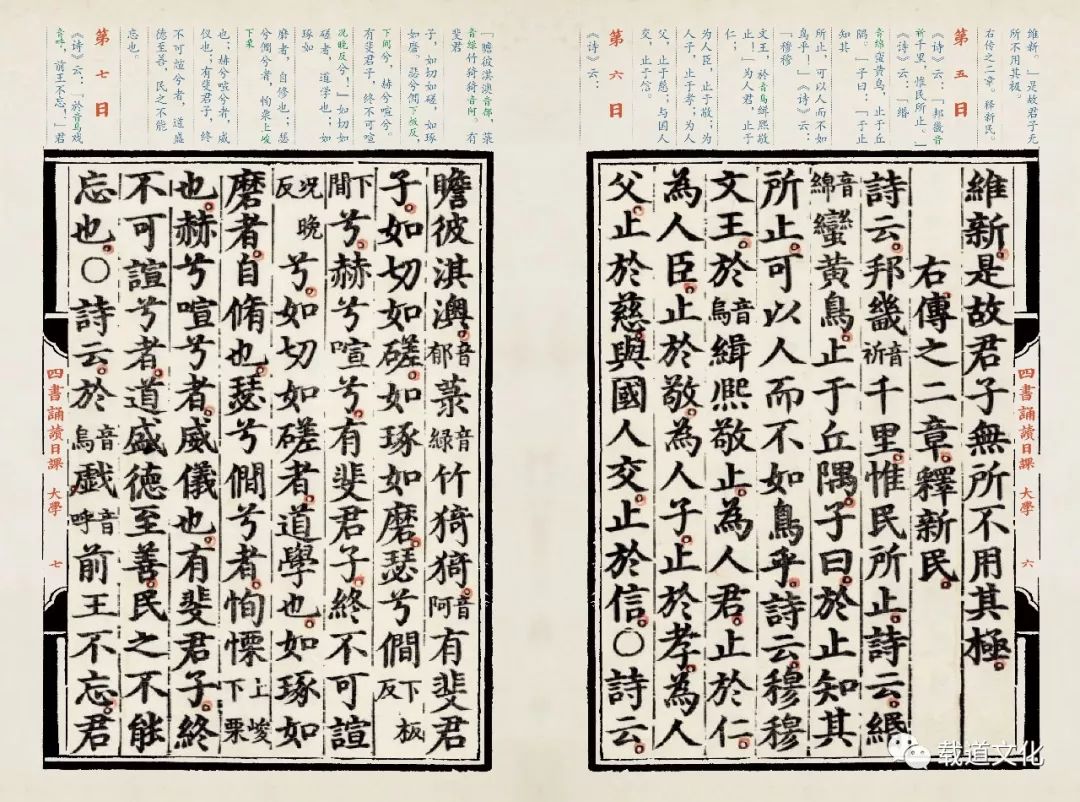 维新。』是故君子无
所不用其极。
右传之二章。释新民。
第五日
《诗》云:『邦畿音
祈千里,惟民所止。』
《诗》云:『缗
音绵蛮黄鸟,止于丘
隅。』子曰:『于止
知其
所止,可以人而不如
鸟乎!』《诗》云:
『穆穆
文王,於音乌缉熙敬
止!』为人君,止于
仁;
为人臣,止于敬;为
人子,止于孝;为人
父,止于慈;与国人
交,止于信。
第六日
《诗》云:
維新。是故君子無所不用其極。
右傳之二章。釋新民。
詩云。邦畿音祈千里。惟民所止。詩云。緡
音綿蠻黃鳥。止于丘隅。子曰。於止知其
所止。可以人而不如鳥乎。詩云。穆穆
文王。於音烏緝熙敬止。為人君。止於仁。
為人臣。止於敬。為人子。止於孝。為人
父。止於慈。與國人交。止於信。〇詩云。
四書誦讀日課 大學 六
『瞻彼淇澳音郁,菉
音绿竹猗猗音阿。有
斐君
子,如切如磋,如琢
如磨。瑟兮僩下板反,
下间兮,赫兮喧兮。
有斐君子,终不可諠
况晚反兮!』如切如
磋者,道学也;如
琢如
磨者,自修也;瑟
兮僩兮者,恂栗上峻
下栗
也;赫兮喧兮者,威
仪也;有斐君子,终
不可諠兮者,道盛
德至善,民之不能
忘也。
第七日
《诗》云:『於音乌戏
音呼,前王不忘!』君
瞻彼淇澳。音郁菉音緑竹猗猗。音阿有斐君
子。如切如磋。如琢如磨。瑟兮僩下板反
下間兮。赫兮喧兮。有斐君子。終不可諠
况晚反兮。如切如磋者。道學也。如琢如
磨者。自脩也。瑟兮僩兮者。恂慄上峻下栗
也。赫兮喧兮者。威儀也。有斐君子。終
不可諠兮者。道盛德至善。民之不能
忘也。〇詩云。於音烏戲音呼前王不忘。君
四書誦讀日課 大學 七
载道文化